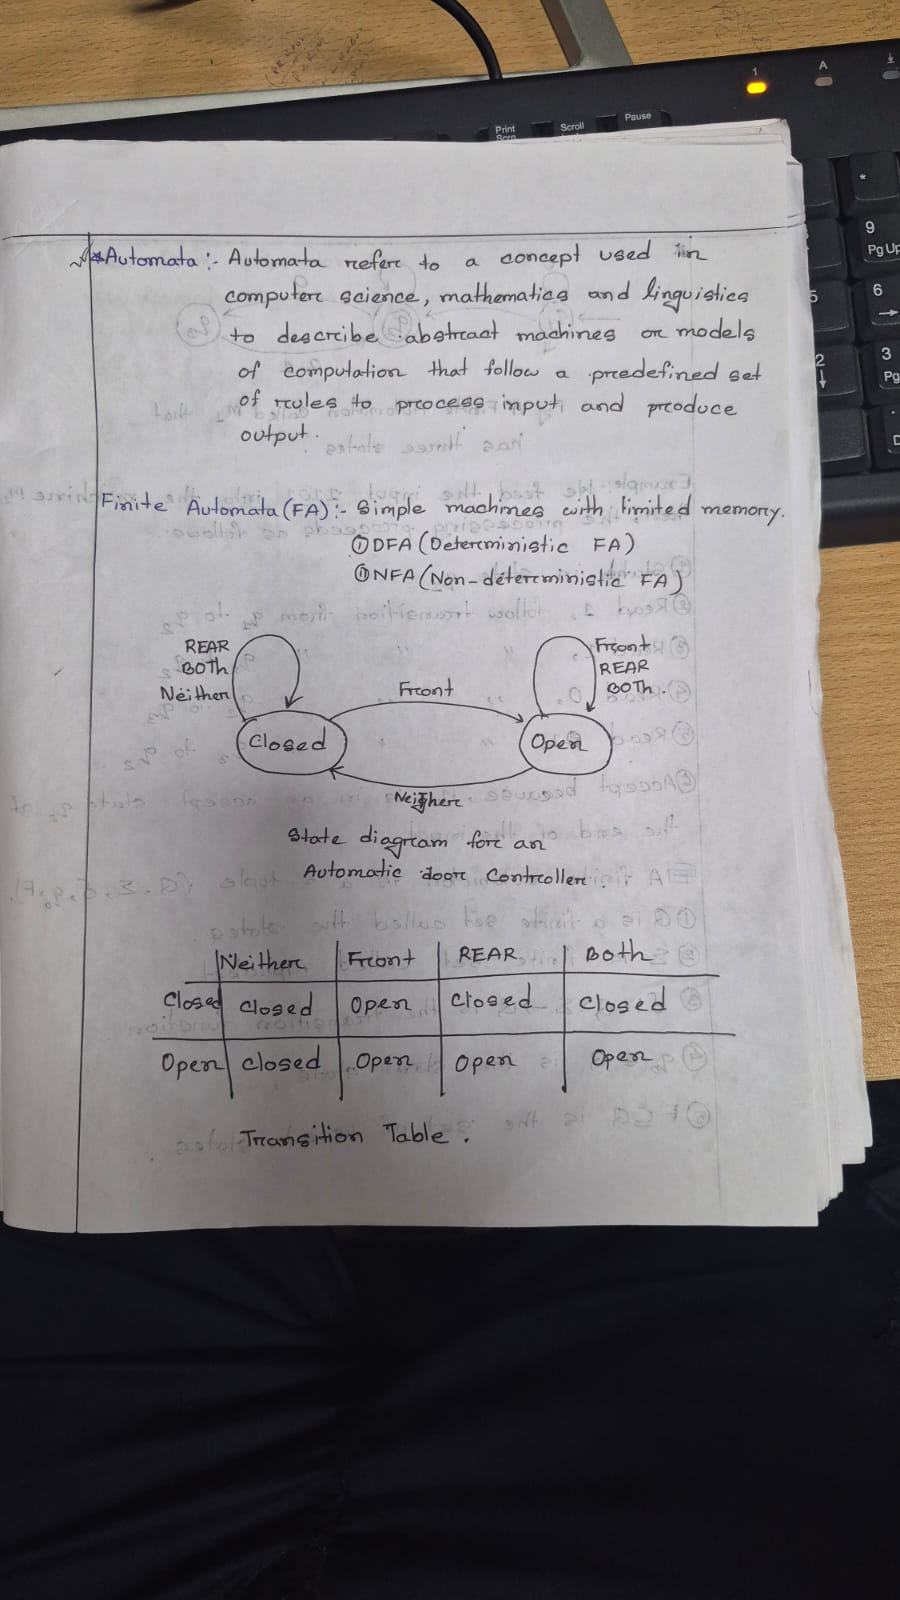 *Automata :- Automata refer to a concept used in
computer science, mathematics and linguistics
to describe abstract machines or models
of computation that follow a predefined set
of rules to process input and produce
output.
Finite Automata (FA) :- Simple machines with limited memory.
① DFA (Deterministic FA)
② NFA (Non-deterministic FA)
REAR
BOTH
Neither
Front
Front
REAR
BOTH.
Closed
Open
Neither
State diagram for an
Automatic door Controller.
Neither Front REAR Both
Closed Closed Open Closed Closed
Open Closed Open Open Open
Transition Table.
1
A
Print
Scrn
Scroll
Pause
*
9
PgUp
5
6
→
2
↓
3
Pg